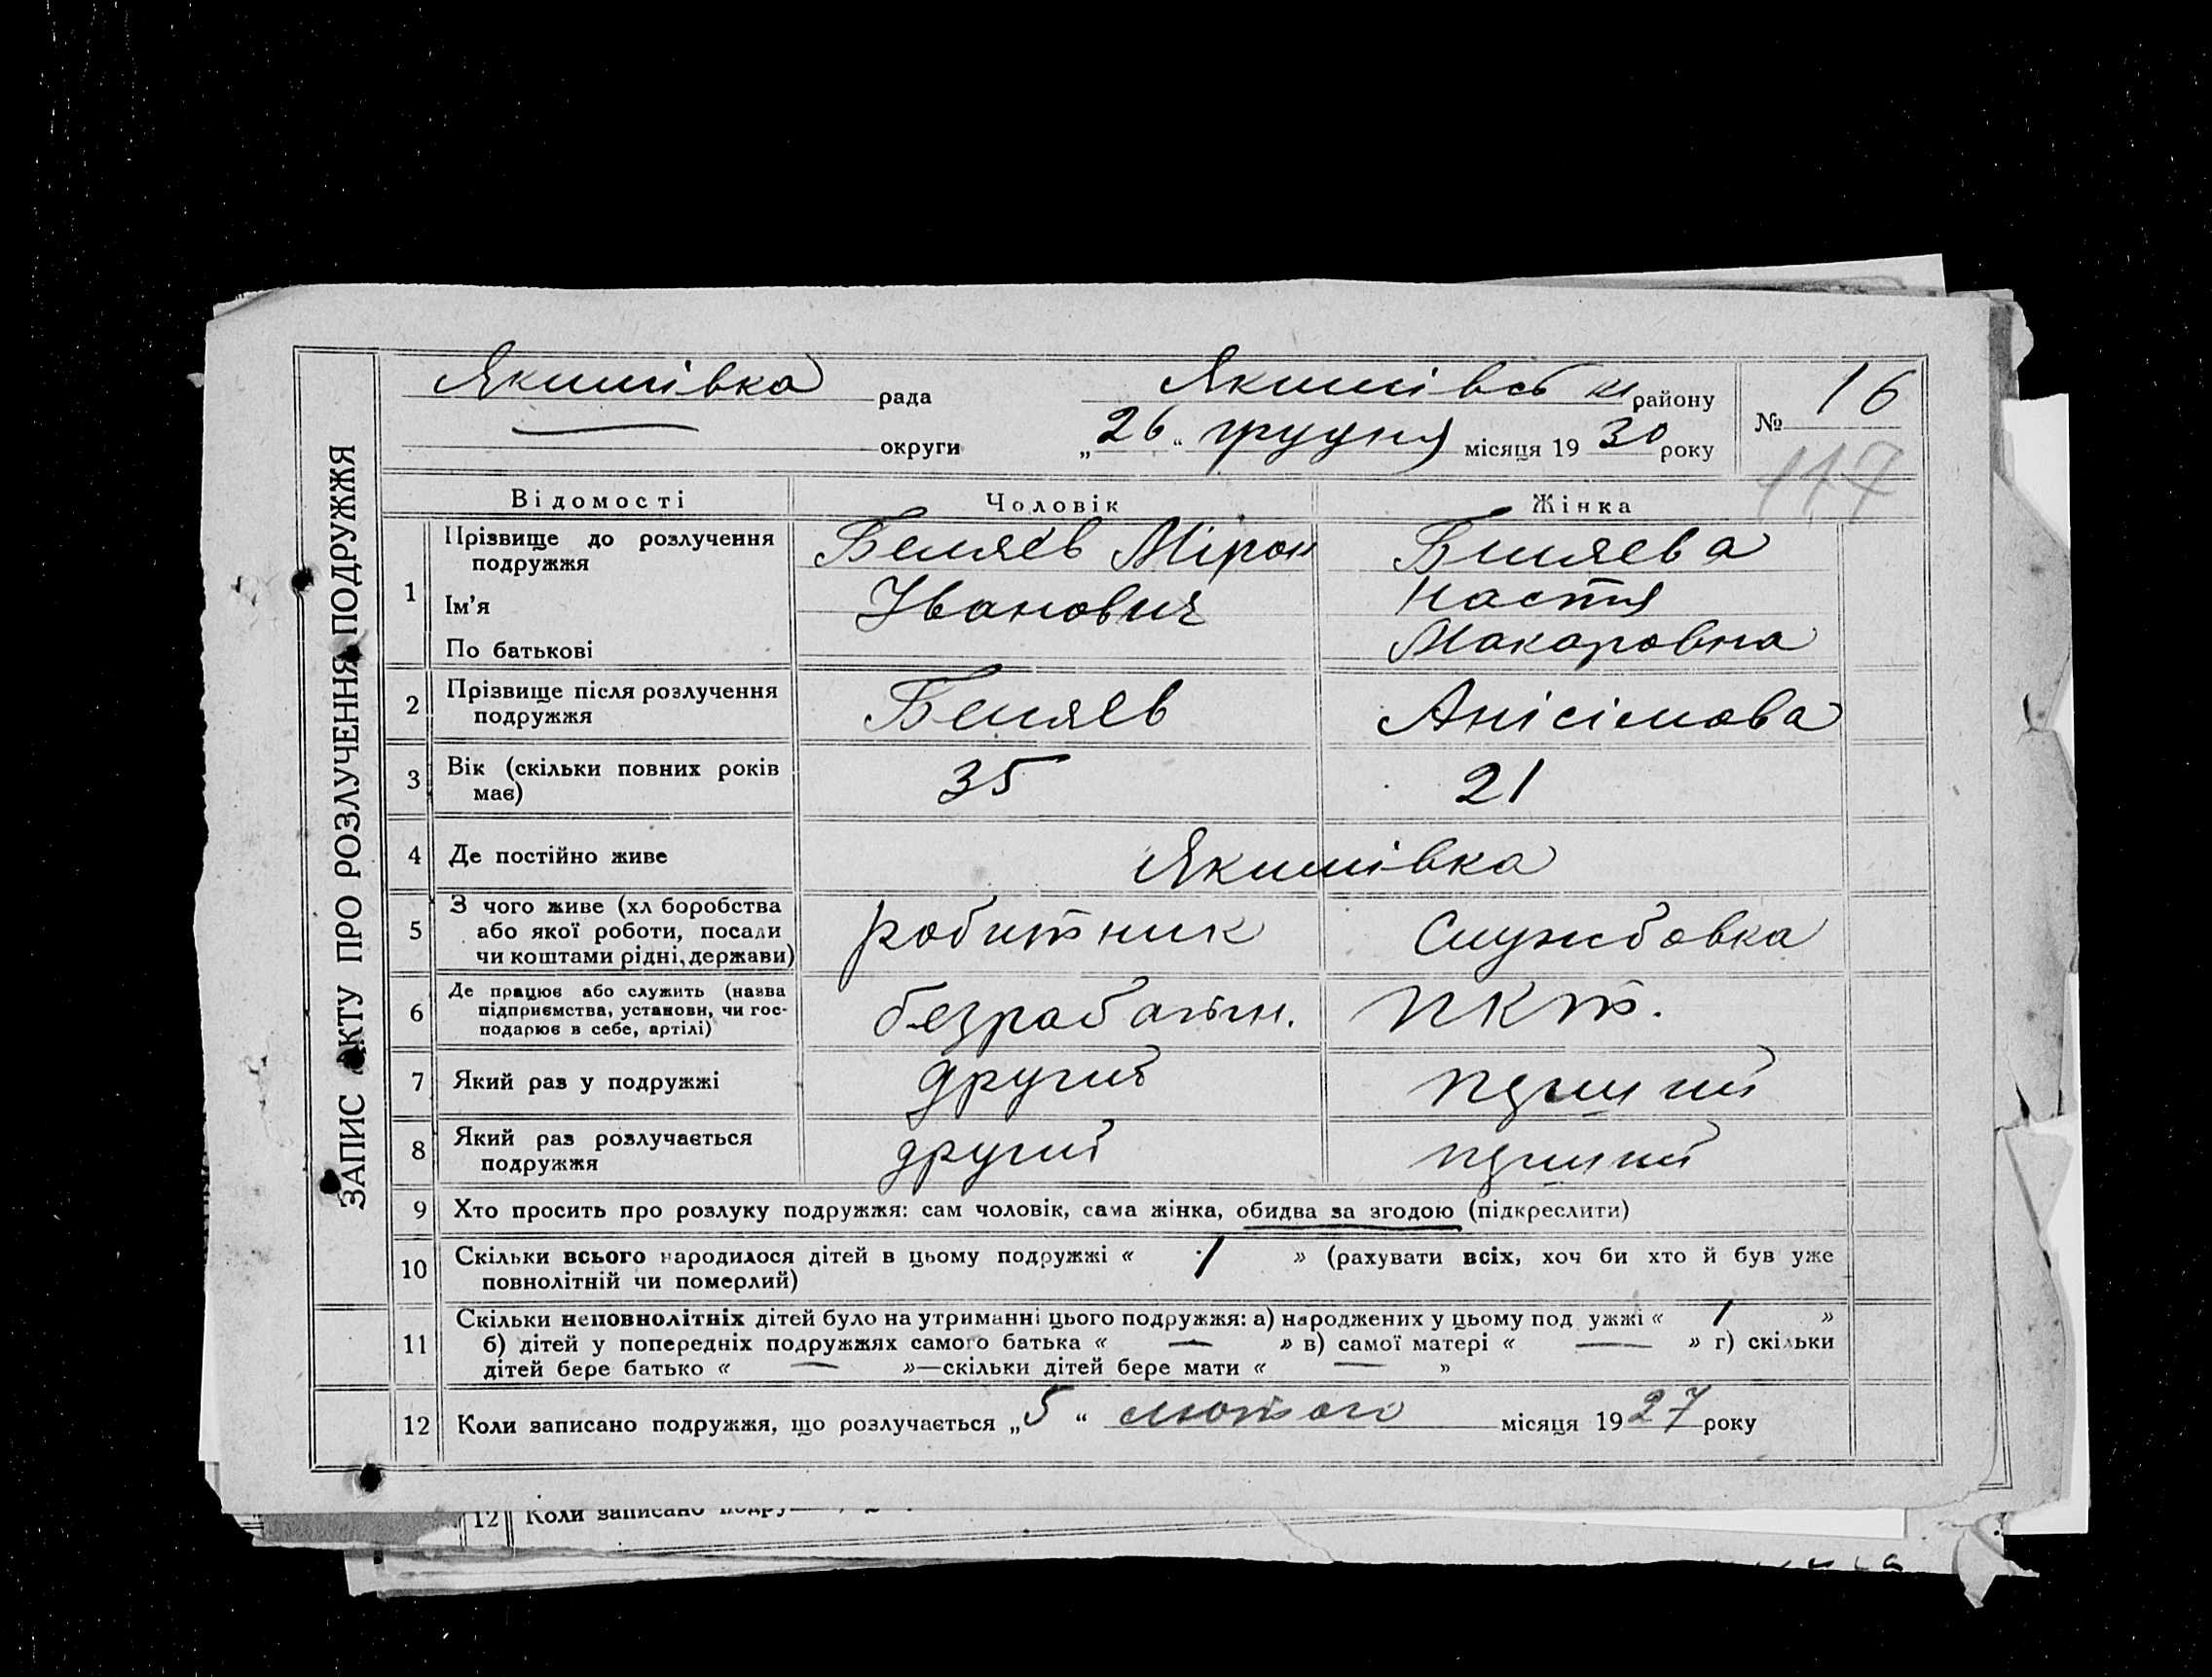 ЗАПИС АКТУ ПРО РОЗЛУЧЕННЯ ПОДРУЖЖЯ
Якимівка рада Якимівськ району № 16
округи „26“ грудня місяця 1930 року
117
Відомості Чоловік Жінка
1 Прізвище до розлучення подружжя Беляєв Мірон Биляєва
Ім'я Іванович Настя
По батькові Макаровна
2 Прізвище після розлучення подружжя Беляєв Анісімова
3 Вік (скільки повних років має) 35 21
4 Де постійно живе Якимівка
5 З чого живе (хл боробства
або якої роботи, посади робитник Службовка
чи коштами рідні, держави)
6 Де працює або служить (назва
підприємства, установи, чи гос- безработн.
подарює в себе, артілі)
7 Який раз у подружжі другий
8 Який раз розлучається подружжя другий
9 Хто просить про розлуку подружжя: сам чоловік, сама жінка, обидва за згодою (підкреслити)
10 Скільки всього народилося дітей в цьому подружжі « 1 » (рахувати всіх, хоч би хто й був уже
повнолітній чи померлий)
11 Скільки неповнолітніх дітей було на утриманні цього подружжя: а) народжених у цьому под ужжі « 1 »
б) дітей у попередніх подружжях самого батька « — » в) самої матері « — » г) скільки
дітей бере батько « — »—скільки дітей бере мати « — »
12 Коли записано подружжя, що розлучається „5“ лютого місяця 1927 року
12 Коли записано